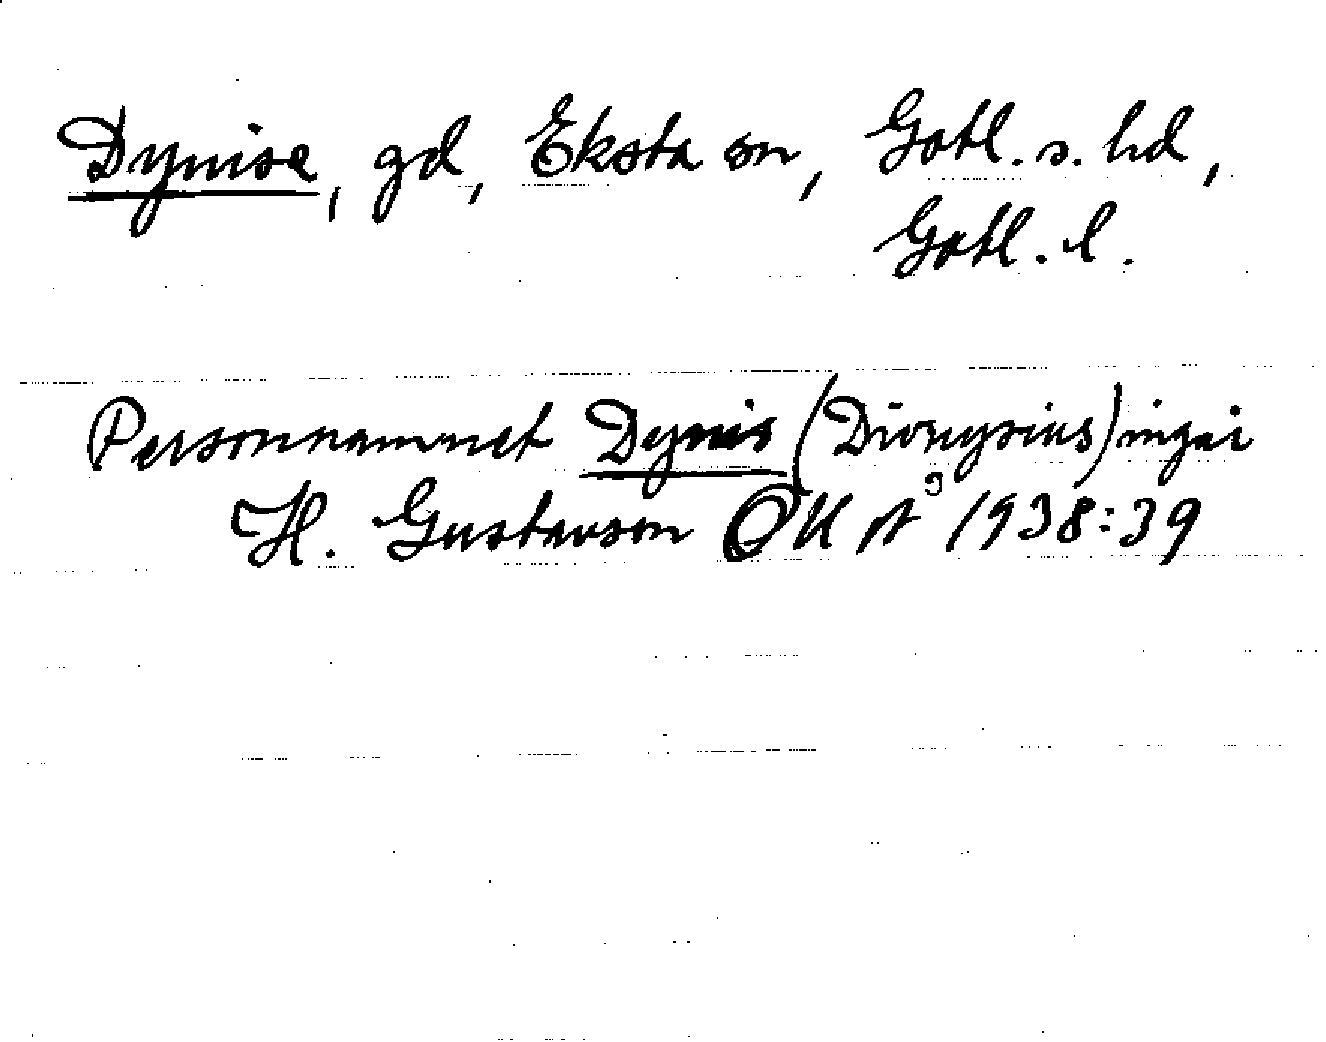 Dynise, gd, Eksta sn, Gotl. s. hd,
Gotl. l.
Personnamnet Dynis (Dionysius) ingår
H. Gustavson OK på 1938:39